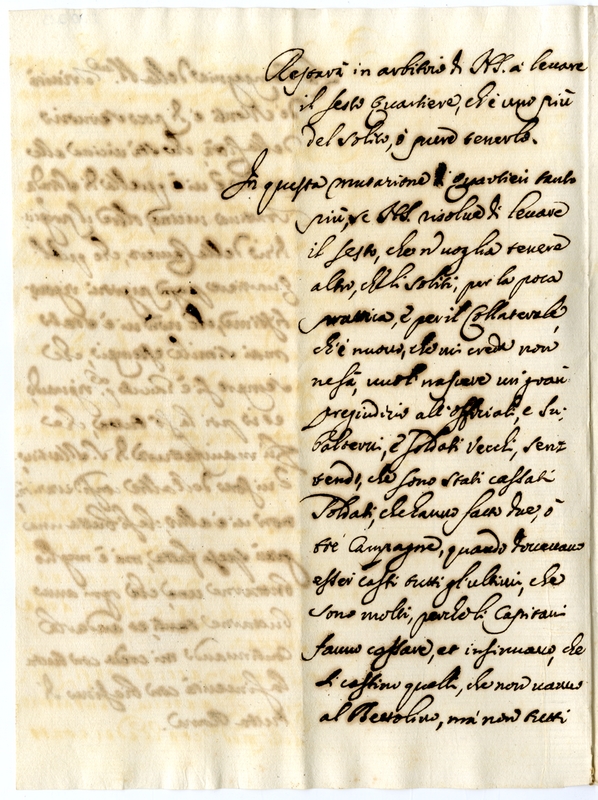 Restarà in arbitrio di V.S. à levare
il sesto quartiere, ch'è uno più
del solito, ò pure tenerlo.
In questa mutazione di quartieri tanto
più, se V.S. risolve di levare
il sesto, che n' voglia tenere
altro, ch li soliti, per la poca
prattica, è per il Collaterale,
ch'è nuovo, che mi crede non
ne sà, vuol nascere un gran
pregiudizio all' Offitiali, e Su-
balterni, è Soldati vecchi, sent
tendo, che sono stati cassati
Soldati, che hanno fatto due, ò
tré Campagne, quando dovevano
esser casti tutti gl'ultimi, che
sono molti, perche li Capitani
fanno cassare, et insinuano, che
si cassino quelli, che non vanno
al Bettolino, mà non tutti